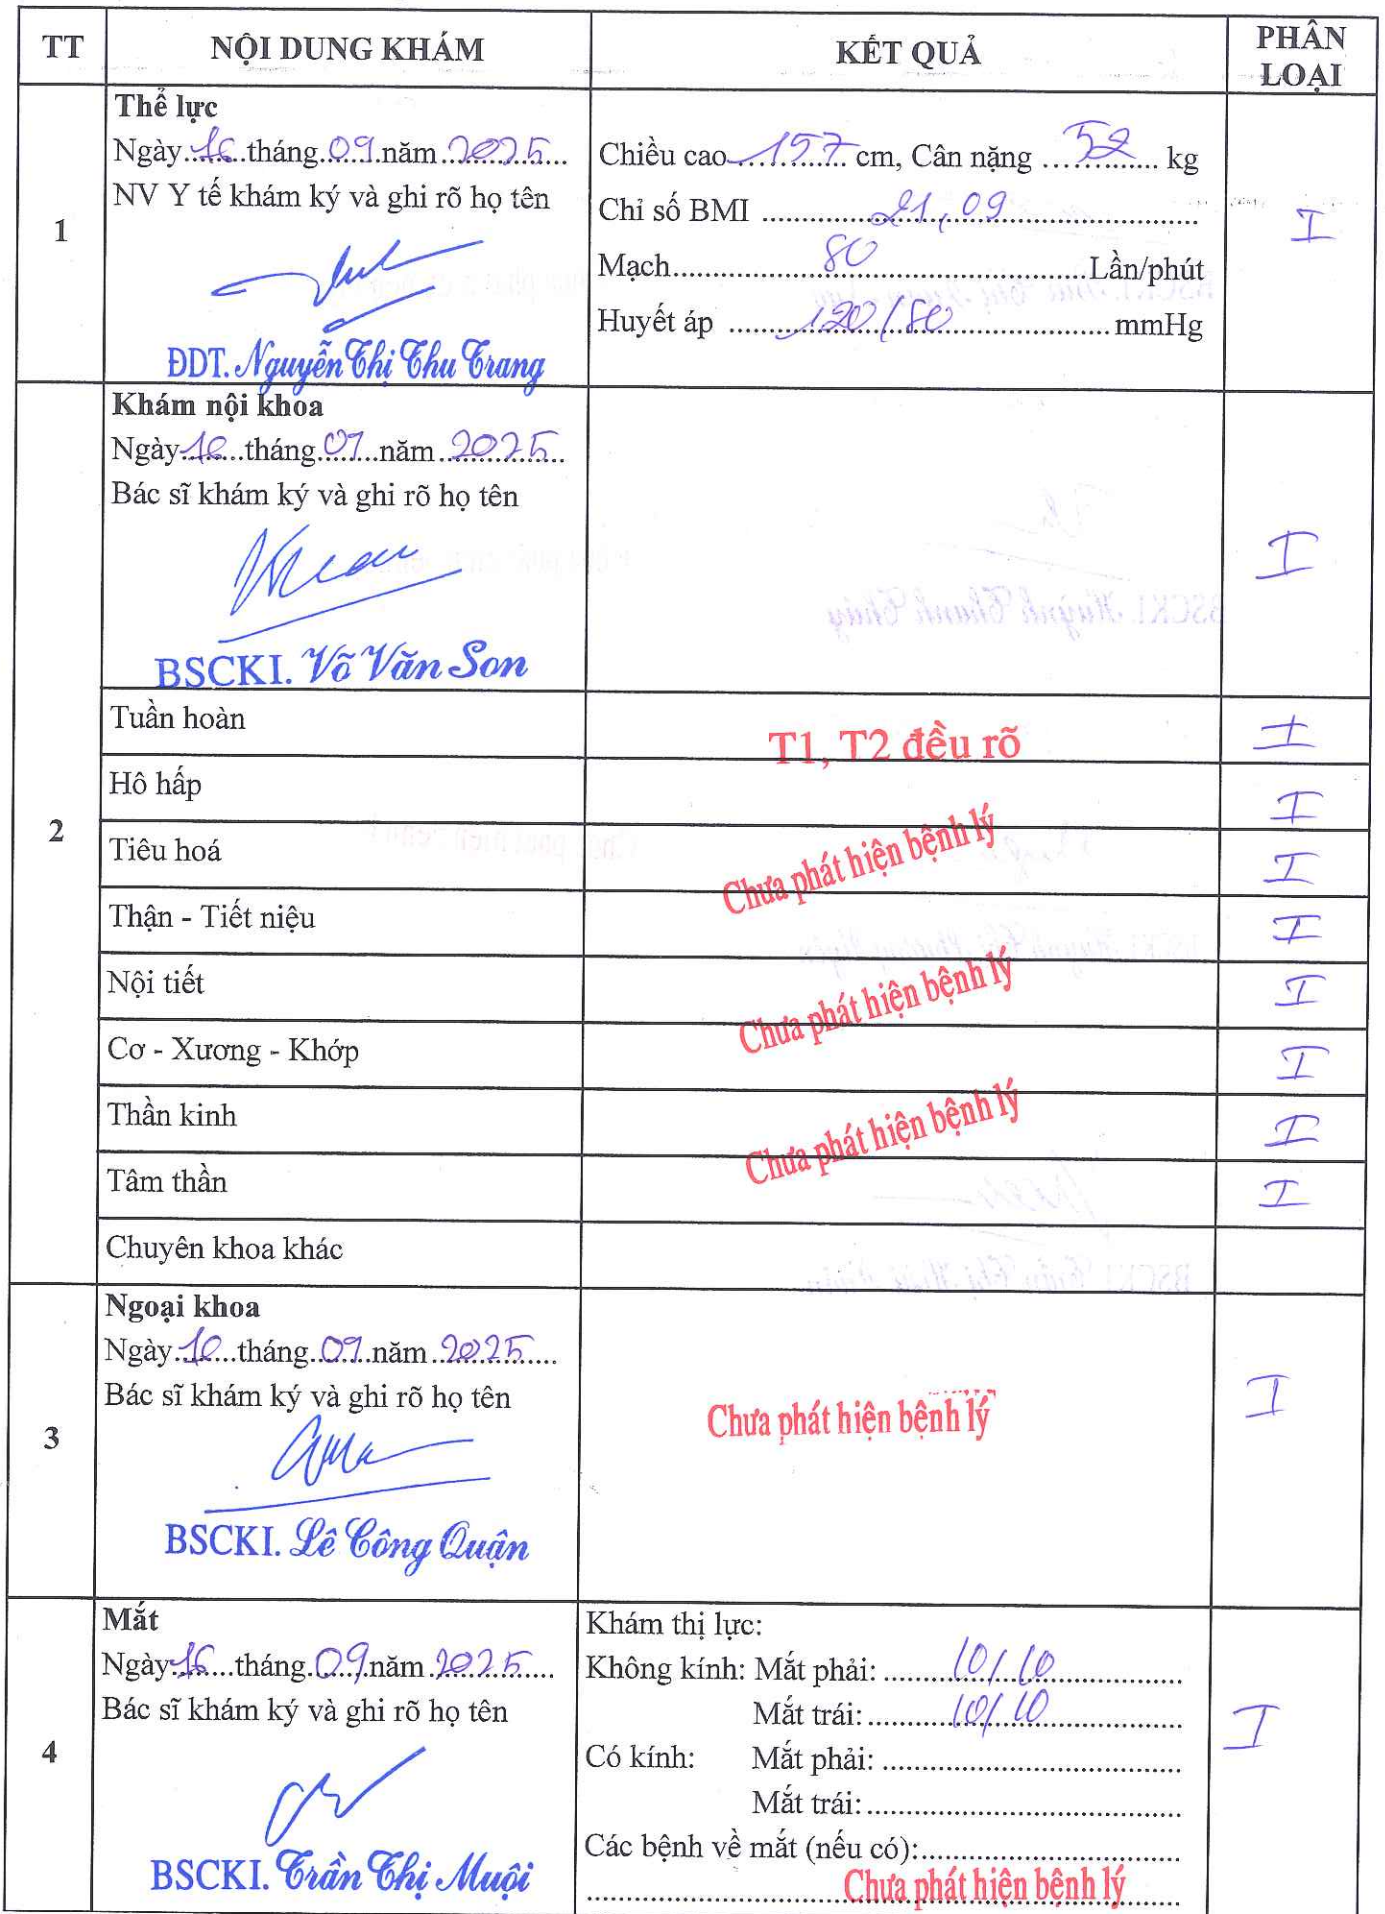 TT NỘI DUNG KHÁM KẾT QUẢ PHÂN LOẠI
1
Thể lực
Ngày 16 tháng 09 năm 2025
NV Y tế khám ký và ghi rõ họ tên
ĐDT. Nguyễn Thị Thu Trang
Chiều cao 157 cm, Cân nặng 52 kg
Chỉ số BMI 21,09
Mạch 80 Lần/phút
Huyết áp 120/80 mmHg
I
2
Khám nội khoa
Ngày tháng 09 năm 2025
Bác sĩ khám ký và ghi rõ họ tên
BSCKI. Võ Văn Son
I
Tuần hoàn T1, T2 đều rõ I
Hô hấp I
Chưa phát hiện bệnh lý
Tiêu hoá I
Thận - Tiết niệu I
Chưa phát hiện bệnh lý
Nội tiết I
Cơ - Xương - Khớp I
Chưa phát hiện bệnh lý
Thần kinh I
Tâm thần I
Chuyên khoa khác
3
Ngoại khoa
Ngày tháng 09 năm 2025
Bác sĩ khám ký và ghi rõ họ tên
BSCKI. Lê Công Quận
Chưa phát hiện bệnh lý
I
4
Mắt
Ngày 16 tháng 09 năm 2025
Bác sĩ khám ký và ghi rõ họ tên
BSCKI. Trần Thị Muội
Khám thị lực:
Không kính: Mắt phải: 10/10
Mắt trái: 10/10
Có kính: Mắt phải:
Mắt trái:
Các bệnh về mắt (nếu có):
Chưa phát hiện bệnh lý
I